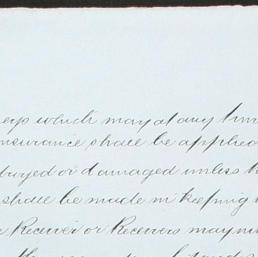 which may at any tim
insurance shall be applied
troyed or damaged unless t
shall be made in keeping
Receiver or Receivers may